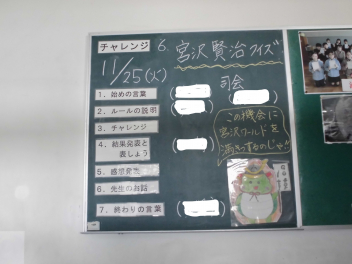 チャレンジ 6. 宮沢賢治クイズ
11/25(火)
司会
1. 始めの言葉
2. ルールの説明
3. チャレンジ
4. 結果発表と
表しょう
5. 感想発表
6. 先生のお話
7. 終わりの言葉
この機会に
宮沢ワールドを